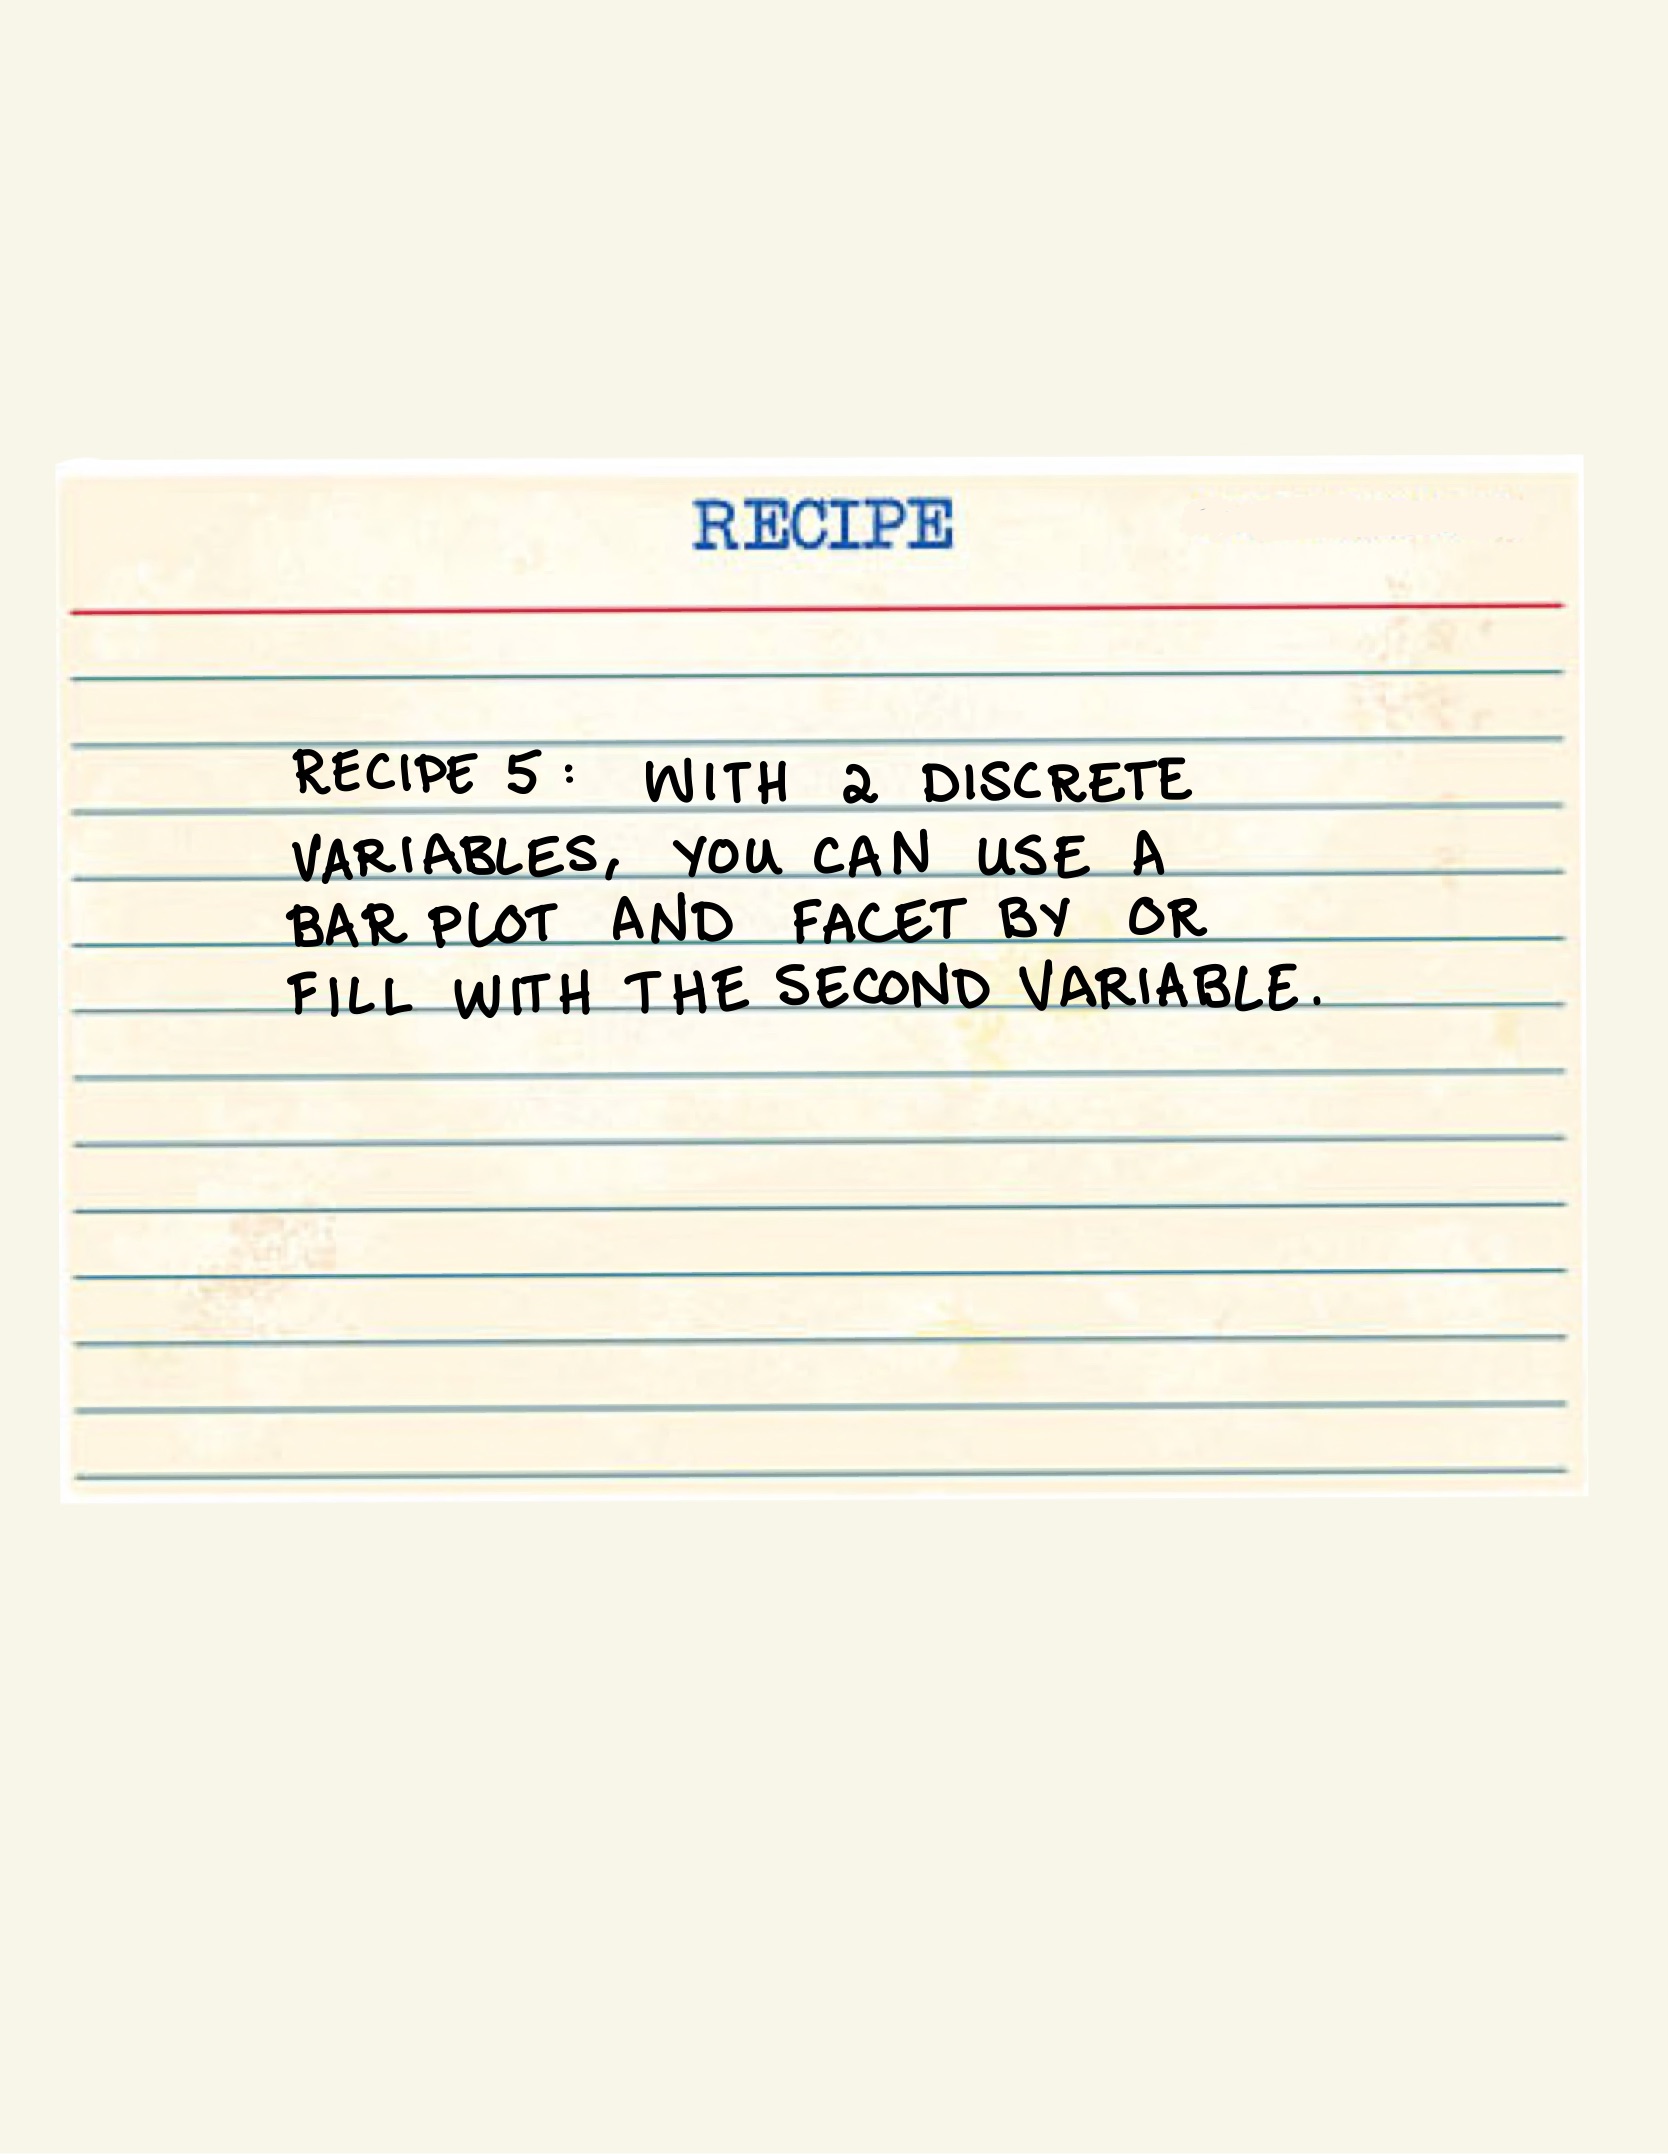 RECIPE
RECIPE 5: WITH 2 DISCRETE
VARIABLES, YOU CAN USE A
BAR PLOT AND FACET BY OR
FILL WITH THE SECOND VARIABLE.